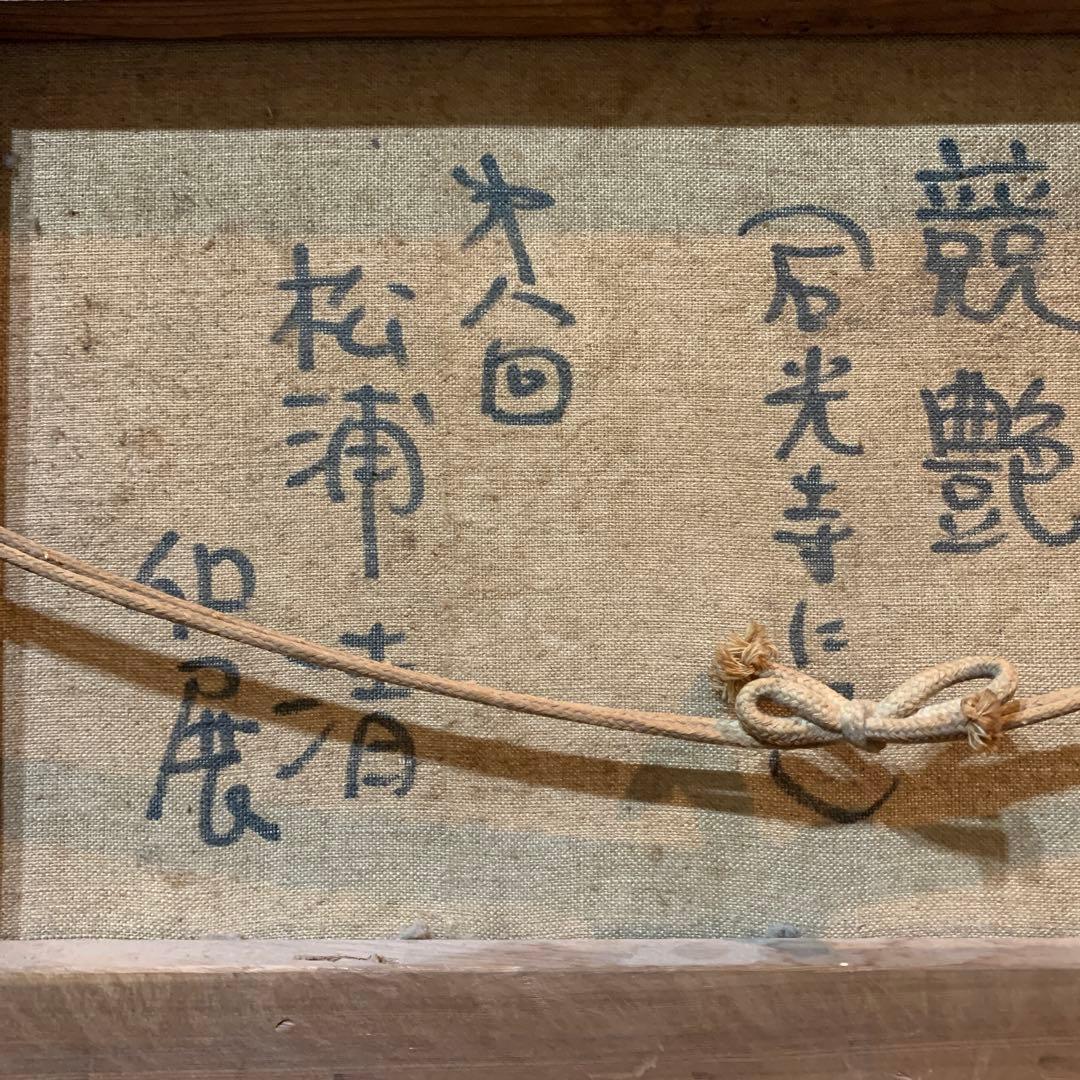 競艶
(石光寺にて)
㐧八回
松浦 清
展